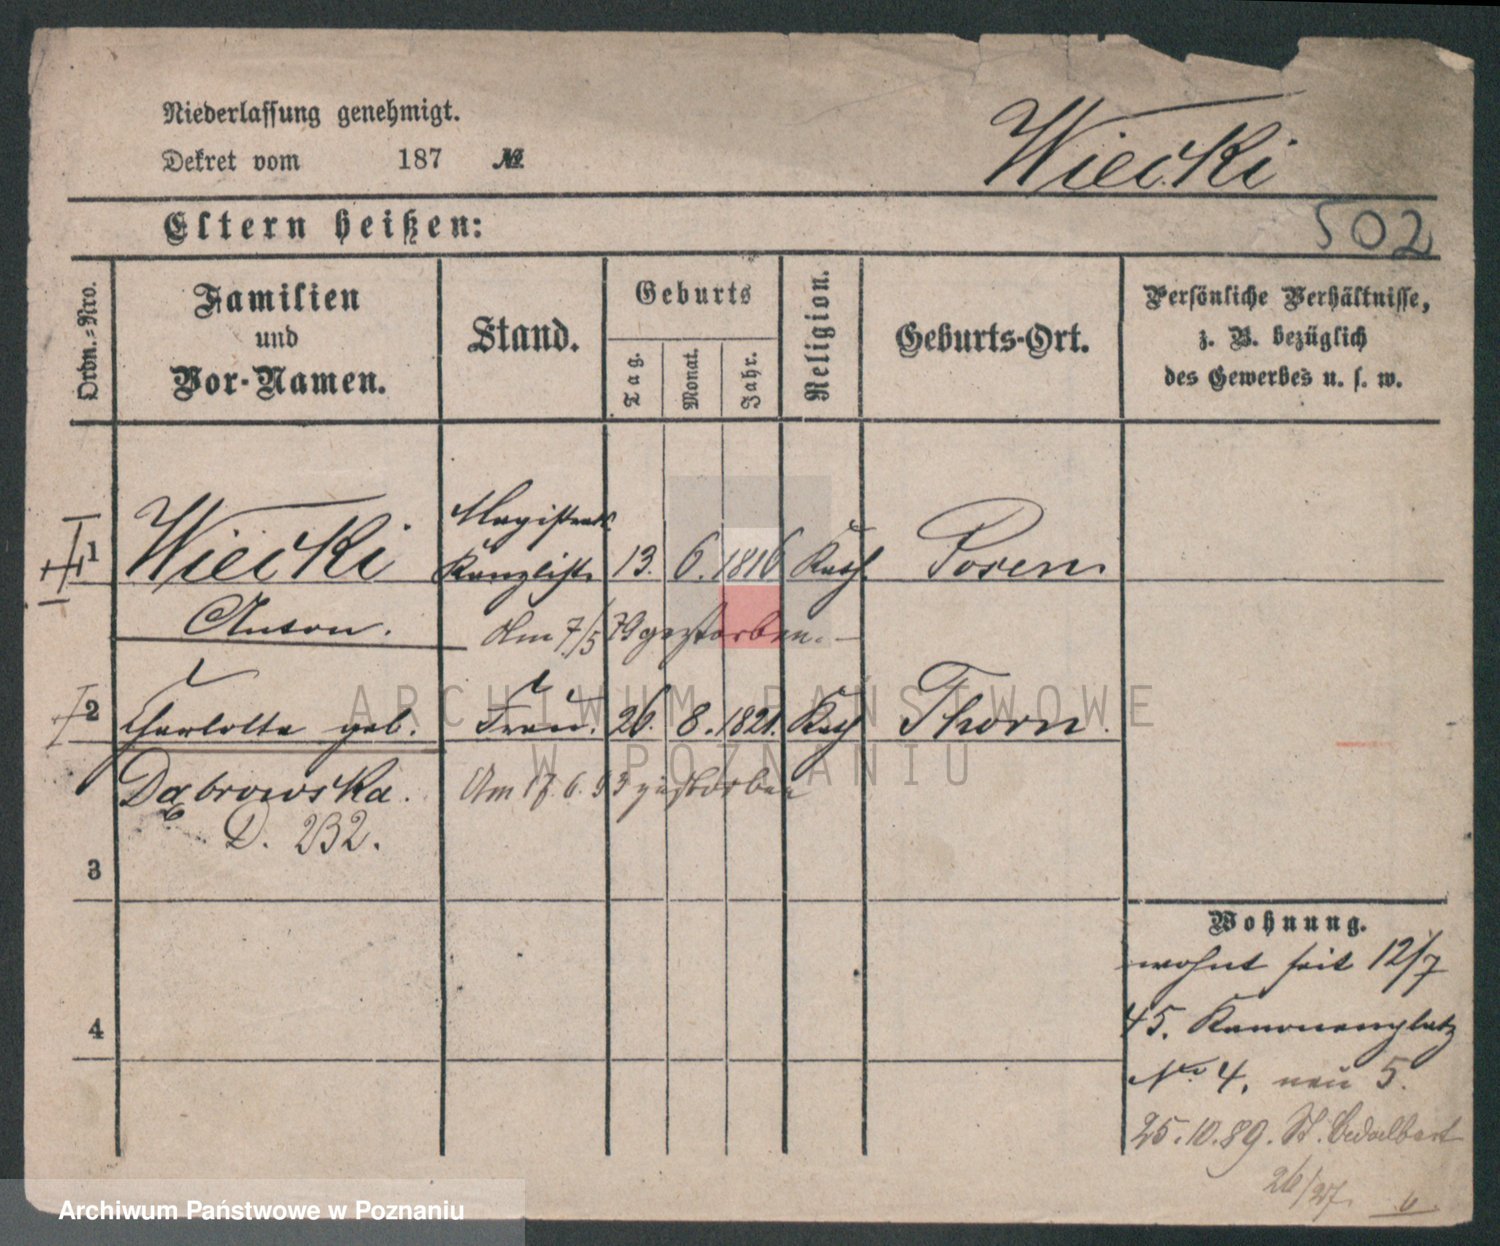 Niederlassung genehmigt.
Dekret vom 187 №
Wiecki
502
Eltern heißen:
Ordn.-Nro.
Familien
und
Vor-Namen.
Stand.
Geburts
Tag.
Monat.
Jahr.
Religion.
Geburts-Ort.
Persönliche Verhältnisse,
z. B. bezüglich
des Gewerbes u. s. w.
Magistrats
1 Wiecki Kanzlist 13. 6. 1816 Kath. Posen
Anton. Am 7/5 79 gestorben.
2 Charlotte geb. Frau. 26. 8. 1821. Kath Thorn.
Dąbrowska. Am 17. 6. 93 gestorben
D. 232.
3
4
Wohnung.
wohnt seit 12/7
45. Kanonenplatz
No. 4, neu 5.
25.10.89. St. Adalbert
26/27.
ARCHIWUM PAŃSTWOWE
W POZNANIU
Archiwum Państwowe w Poznaniu